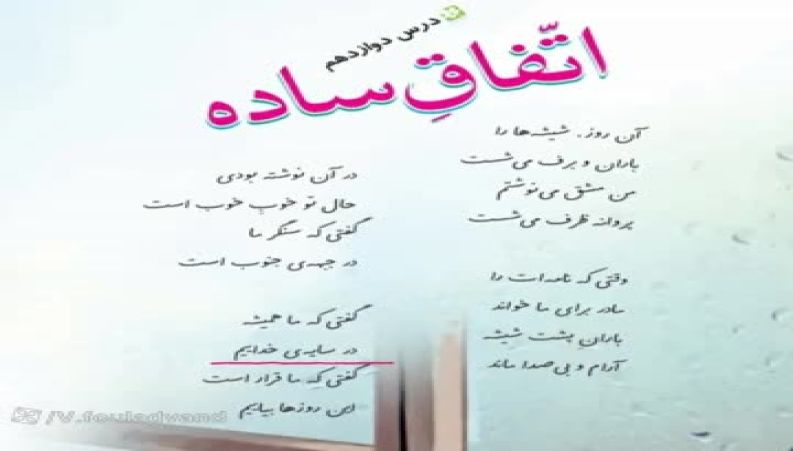 درس دوازدهم
اتّفاقِ ساده
آن روز، شیشه‌ها را
باران و برف می‌شست
من مشق می‌نوشتم
پروانه ظرف می‌شست
وقتی که نامه‌ات را
مادر برای ما خواند
بارانِ پشت شیشه
آرام و بی صدا ماند
در آن نوشته بودی
حال تو خوبِ خوب است
گفتی که سنگر ما
در جبهه‌ی جنوب است
گفتی که ما همیشه
در سایه‌ی خداییم
گفتی که ما قرار است
این روزها بیاییم
/V.fouladvand